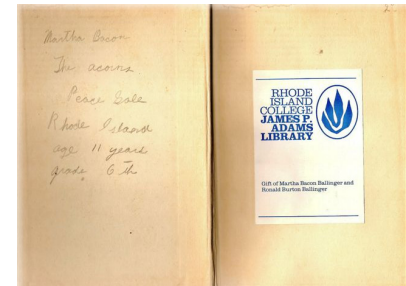 Martha Bacon
The acorns
Peace Dale
Rhode Island
age 11 years
grade 6th
RHODE
ISLAND
COLLEGE
JAMES P.
ADAMS
LIBRARY
Gift of Martha Bacon Ballinger and
Ronald Burton Ballinger